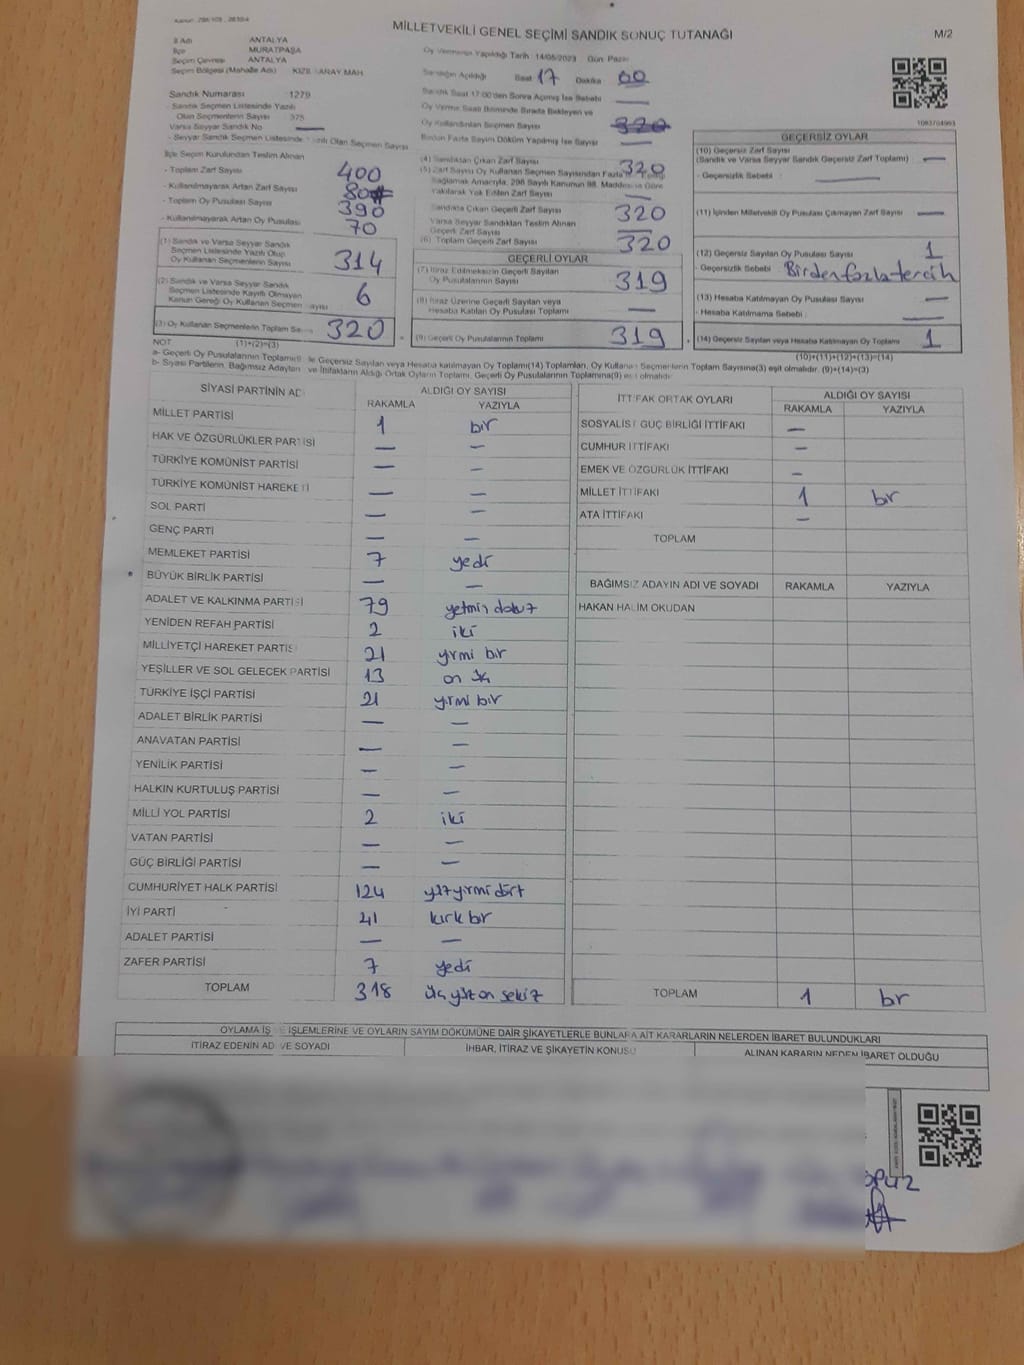 Kanun: 298/105 , 2839/4
MİLLETVEKİLİ GENEL SEÇİMİ SANDIK SONUÇ TUTANAĞI
M/2
İl Adı ANTALYA
İlçe MURATPAŞA
Seçim Çevresi ANTALYA
Seçim Bölgesi (Mahalle Adı) KIZILSARAY MAH.
Sandık Numarası 1279
- Sandık Seçmen Listesinde Yazılı
Olan Seçmenlerin Sayısı 375
Varsa Seyyar Sandık No —
- Seyyar Sandık Seçmen Listesinde Yazılı Olan Seçmen Sayısı
İlçe Seçim Kurulundan Teslim Alınan
- Toplam Zarf Sayısı 400
- Kullanılmayarak Artan Zarf Sayısı 80
- Toplam Oy Pusulası Sayısı 390
- Kullanılmayarak Artan Oy Pusulası 70
(1) Sandık ve Varsa Seyyar Sandık
Seçmen Listesinde Yazılı Olup
Oy Kullananların Sayısı 314
(2) Sandık ve Varsa Seyyar Sandık
Seçmen Listesinde Kayıtlı Olmayan
Kanun Gereği Oy Kullanan Seçmen Sayısı 6
(3) Oy Kullanan Seçmenlerin Toplam Sayısı 320
(1)+(2)=(3)
Oy Vermenin Yapıldığı Tarih 14/05/2023 Gün: Pazar
Sandığın Açıldığı Saat 17 Dakika 00
Sandık Saat 17:00'den Sonra Açılmış İse Sebebi —
Oy Verme Saati Bitiminde Sırada Bekleyen ve
Oy Kullandırılan Seçmen Sayısı 320
Birden Fazla Sayım Döküm Yapılmış İse Sayısı —
(4) Sandıktan Çıkan Zarf Sayısı 320
(5) Zarf Sayısı Oy Kullanan Seçmen Sayısından Fazla İse Eşitliği
Sağlamak Amacıyla, 298 Sayılı Kanunun 98. Maddesine Göre
Yakılarak Yok Edilen Zarf Sayısı —
Sandıkta Çıkan Geçerli Zarf Sayısı 320
Varsa Seyyar Sandıktan Teslim Alınan
Geçerli Zarf Sayısı —
(6) Toplam Geçerli Zarf Sayısı 320
GEÇERLİ OYLAR
(7) İtiraz Edilmeksizin Geçerli Sayılan
Oy Pusulasının Sayısı 319
(8) İtiraz Üzerine Geçerli Sayılan veya
Hesaba Katılan Oy Pusulası Toplamı —
(9) Geçerli Oy Pusulalarının Toplamı 319
1093/04993
GEÇERSİZ OYLAR
(10) Geçersiz Zarf Sayısı
(Sandık ve Varsa Seyyar Sandık Geçersiz Zarf Toplamı) —
- Geçersizlik Sebebi : —
(11) İçinden Milletvekili Oy Pusulası Çıkmayan Zarf Sayısı —
(12) Geçersiz Sayılan Oy Pusulası Sayısı 1
- Geçersizlik Sebebi : Birden fazla tercih
(13) Hesaba Katılmayan Oy Pusulası Sayısı —
- Hesaba Katılmama Sebebi : —
(14) Geçersiz Sayılan veya Hesaba Katılmayan Oy Toplamı 1
(10)+(11)+(12)+(13)=(14)
NOT
a- Geçerli Oy Pusulalarının Toplamı(9) ile Geçersiz Sayılan veya Hesaba katılmayan Oy Toplamı(14) Toplamları, Oy Kullanan Seçmenlerin Toplam Sayısına(3) eşit olmalıdır. (9)+(14)=(3)
b- Siyasi Partilerin, Bağımsız Adayların ve İttifakların Aldığı Ortak Oyların Toplamı, Geçerli Oy Pusulalarının Toplamına(9) eşit olmalıdır
SİYASİ PARTİNİN ADI ALDIĞI OY SAYISI
RAKAMLA YAZIYLA
MİLLET PARTİSİ 1 bir
HAK VE ÖZGÜRLÜKLER PARTİSİ — —
TÜRKİYE KOMÜNİST PARTİSİ — —
TÜRKİYE KOMÜNİST HAREKETİ — —
SOL PARTİ — —
GENÇ PARTİ — —
MEMLEKET PARTİSİ 7 yedi
BÜYÜK BİRLİK PARTİSİ — —
ADALET VE KALKINMA PARTİSİ 79 yetmiş dokuz
YENİDEN REFAH PARTİSİ 2 iki
MİLLİYETÇİ HAREKET PARTİSİ 21 yirmi bir
YEŞİLLER VE SOL GELECEK PARTİSİ 13 on üç
TÜRKİYE İŞÇİ PARTİSİ 21 yirmi bir
ADALET BİRLİK PARTİSİ — —
ANAVATAN PARTİSİ — —
YENİLİK PARTİSİ — —
HALKIN KURTULUŞ PARTİSİ — —
MİLLİ YOL PARTİSİ 2 iki
VATAN PARTİSİ — —
GÜÇ BİRLİĞİ PARTİSİ — —
CUMHURİYET HALK PARTİSİ 124 yüz yirmi dört
İYİ PARTİ 41 kırk bir
ADALET PARTİSİ — —
ZAFER PARTİSİ 7 yedi
TOPLAM 318 üç yüz on sekiz
İTTİFAK ORTAK OYLARI ALDIĞI OY SAYISI
RAKAMLA YAZIYLA
SOSYALİST GÜÇ BİRLİĞİ İTTİFAKI —
CUMHUR İTTİFAKI —
EMEK VE ÖZGÜRLÜK İTTİFAKI —
MİLLET İTTİFAKI 1 bir
ATA İTTİFAKI —
TOPLAM
BAĞIMSIZ ADAYIN ADI VE SOYADI RAKAMLA YAZIYLA
HAKAN HALİM OKUDAN
TOPLAM 1 bir
OYLAMA İŞ VE İŞLEMLERİNE VE OYLARIN SAYIM DÖKÜMÜNE DAİR ŞİKAYETLERLE BUNLARA AİT KARARLARIN NELERDEN İBARET BULUNDUKLARI
İTİRAZ EDENİN ADI VE SOYADI İHBAR, İTİRAZ VE ŞİKAYETİN KONUSU ALINAN KARARIN NEDEN İBARET OLDUĞU